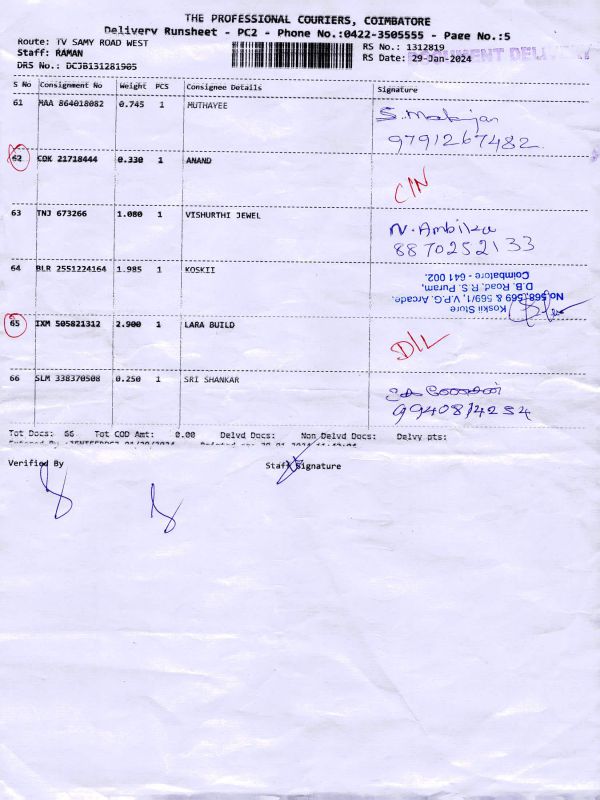 THE PROFESSIONAL COURIERS, COIMBATORE
Delivery Runsheet - PC2 - Phone No.:0422-3505555 - Page No.:5
Route: TV SAMY ROAD WEST
Staff: RAMAN
DRS No.: DCJB131281905
RS No.: 1312819
RS Date: 29-Jan-2024
DOCUMENT DELIVERY
S No Consignment No Weight PCS Consignee Details Signature
61 MAA 864018082 0.745 1 MUTHAYEE
9791267482
62 COK 21718444 0.330 1 ANAND
C/N
63 TNJ 673266 1.080 1 VISHURTHI JEWEL
N. Ambika
8870252133
64 BLR 2551224164 1.985 1 KOSKII
Koskii Store
No.568,569 & 569/1, V.P.G. Arcade.
D.B. Road, R.S. Puram,
Coimbatore - 641 002.
65 IXM 505821312 2.900 1 LARA BUILD
D/L
66 SLM 338370508 0.250 1 SRI SHANKAR
9940814234
Tot Docs: 66 Tot COD Amt: 0.00 Delvd Docs: Non Delvd Docs: Delvy pts:
Verified By Staff Signature